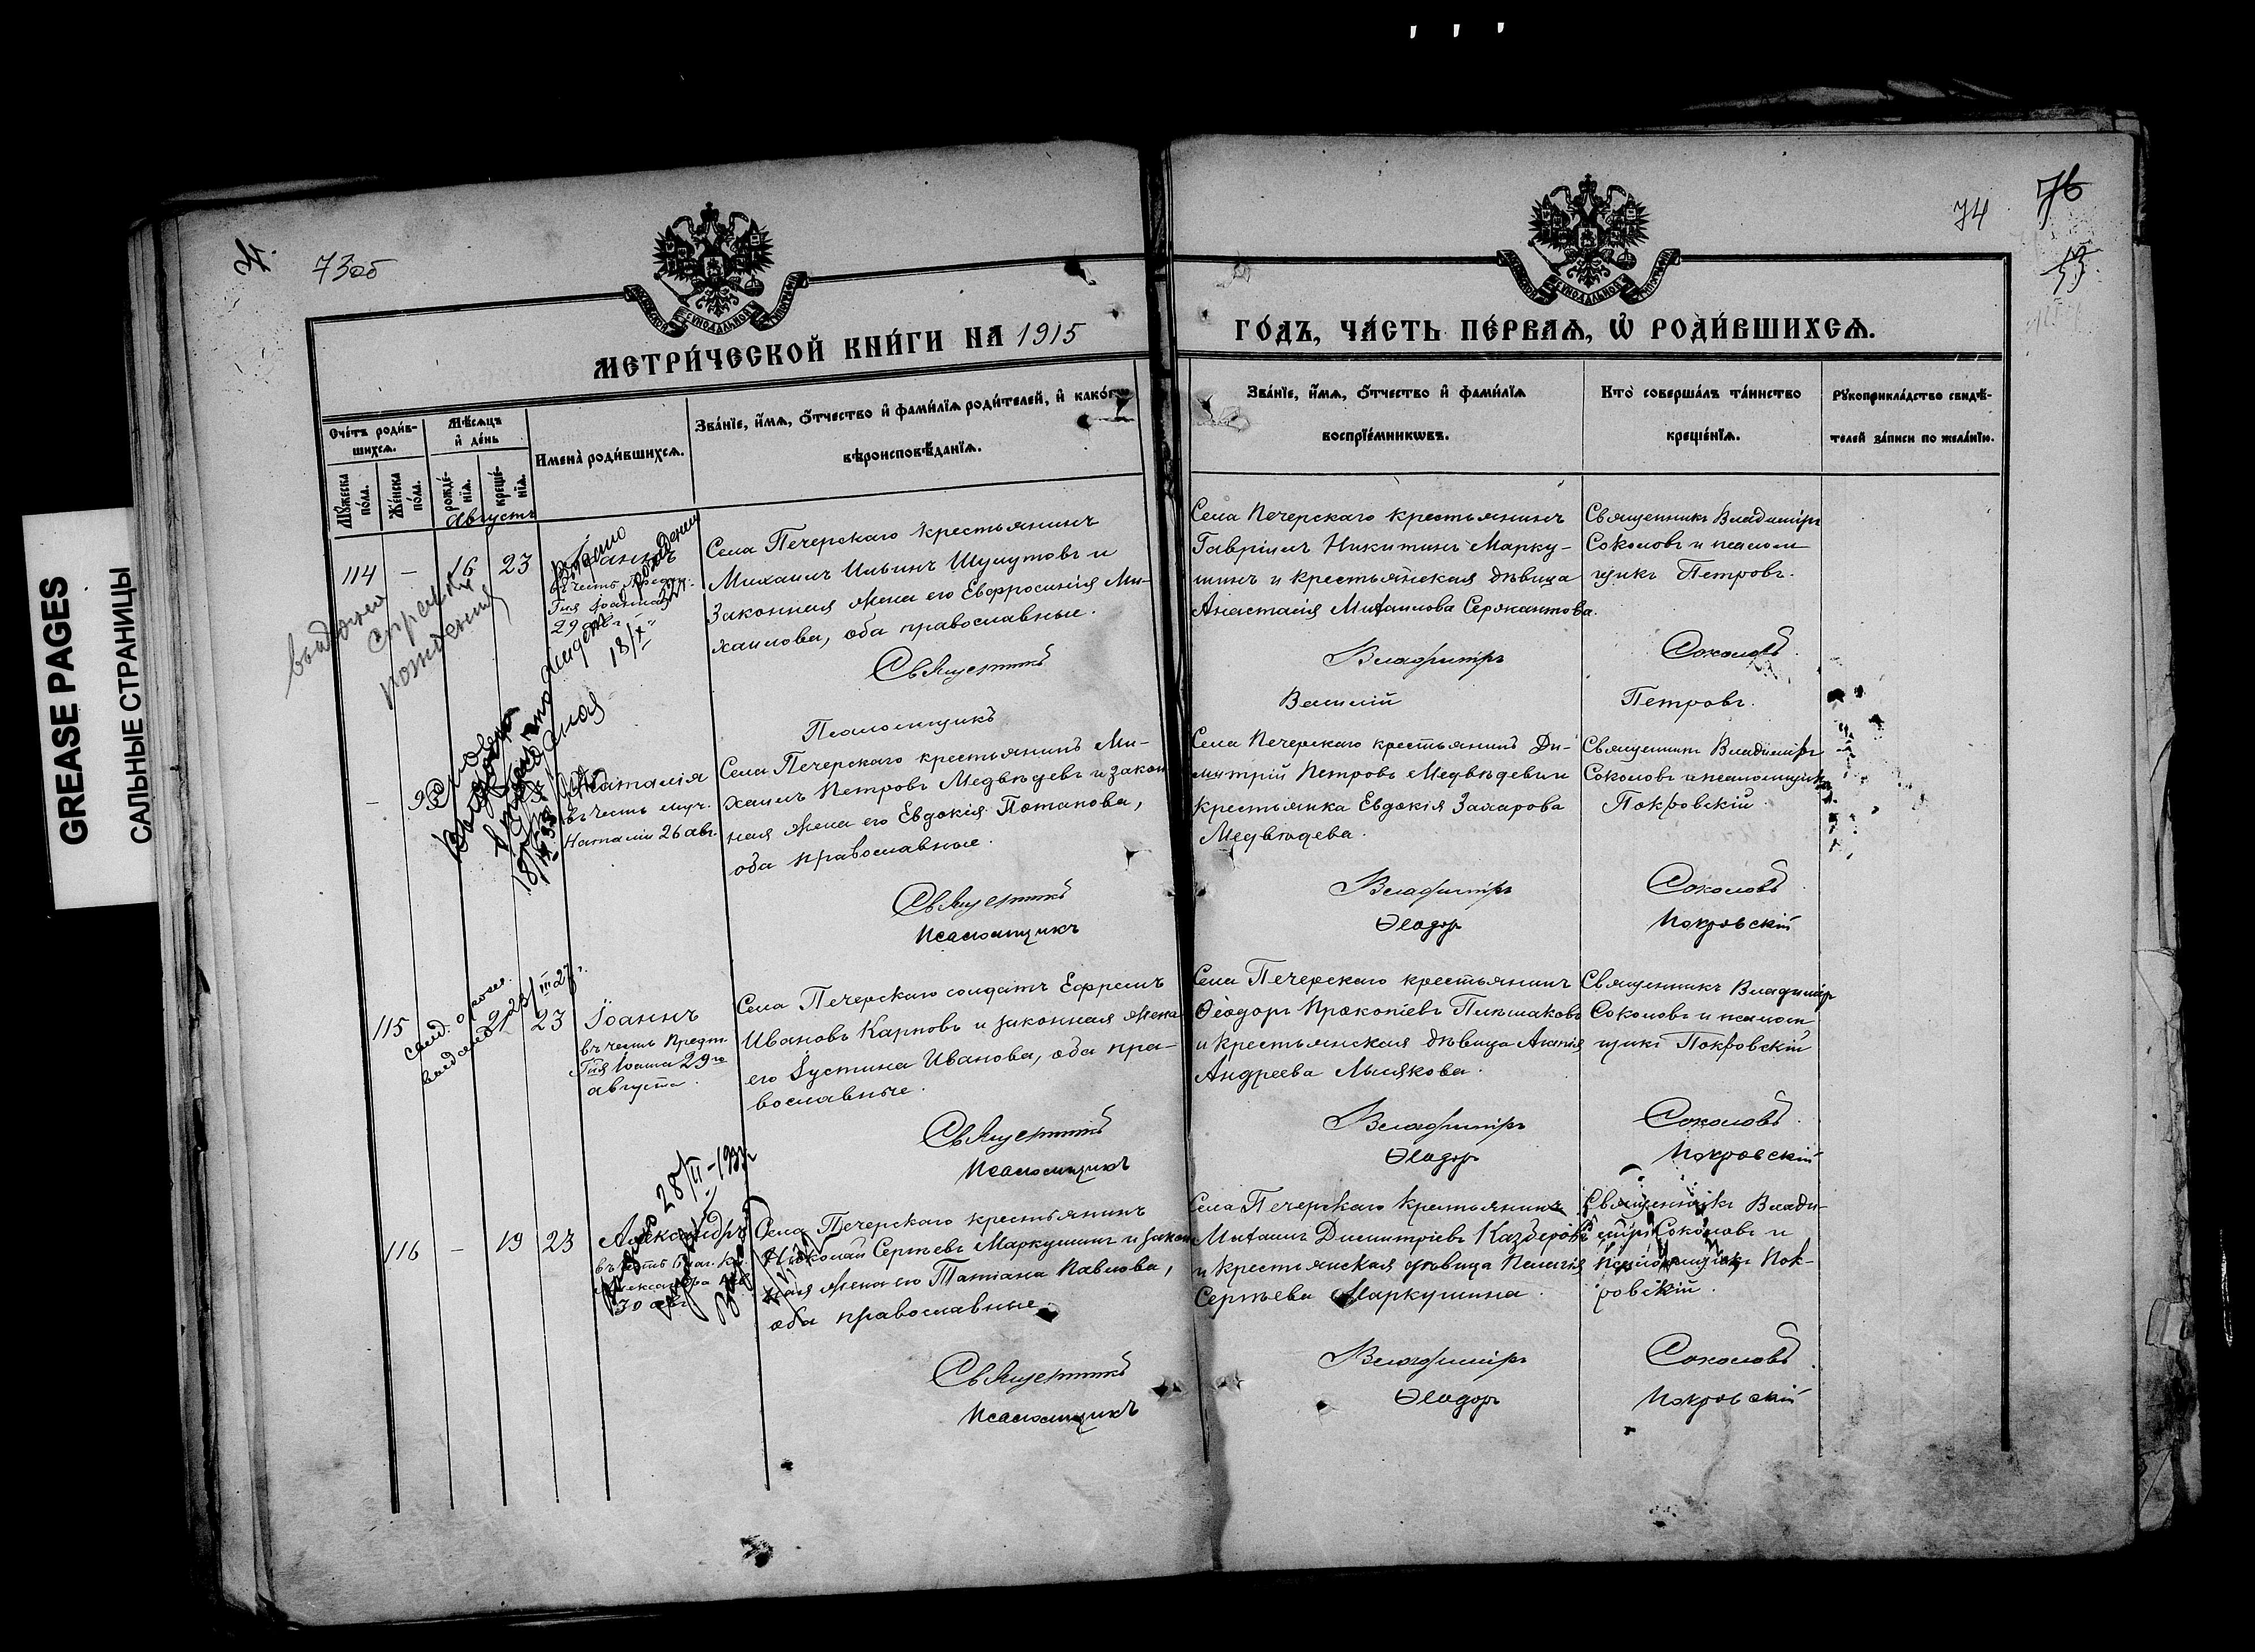 GREASE PAGES
САЛЬНЫЕ СТРАНИЦЫ
73об
74
76
МЕТРИ́ЧЕСКОЙ КНИ́ГИ НА 1915
ГО́ДЪ, ЧА́СТЬ ПЕ́РВАѦ, Ѡ҆ РОДИ́ВШИХСѦ.
Сче́тъ роди́в-
шихсѧ.
Мꙋ́жеска по́ла.
Же́нска по́ла.
Мѣ́сѧцъ и҆ де́нь
рожде́-
нїѧ.
креще́-
нїѧ.
Имена̀ роди́вшихсѧ.
Зва́нїе, и҆́мѧ, ѻ҆́тчество и҆ фами́лїѧ роди́телей, и҆ како́гѡ
вѣроисповѣ́данїѧ.
Зва́нїе, и҆́мѧ, ѻ҆́тчество и҆ фами́лїѧ
воспрїе́мникѡвъ.
Кто̀ соверша́лъ та́инство
креще́нїѧ.
Рꙋкоприкла́дство свидѣ́-
телей за́писи по жела́нїю.
Августъ
114 – 16 23
29 авг.
Села Печерскаго крестьянинъ
Михаилъ Ильинъ Шушутовъ и
законная жена его Евфросинія Ми-
хаилова, оба православные.
Священникъ
Псаломщикъ
Села Печерскаго крестьянинъ
Гавріилъ Никитинъ Марку-
шинъ и крестьянская дѣвица
Анастасія Михаилова Сержантова.
Владиміръ
Василій
Священникъ Владиміръ
Соколовъ и псалом-
щикъ Петровъ.
Соколовъ
Петровъ.
выдана
справка
рождения
18/X
Наталія
въ честь муч.
Наталіи 26 авг.
Села Печерскаго крестьянинъ Ми-
хаилъ Петровъ Медвѣдевъ и закон-
ная жена его Евдокія Потапова,
оба православные.
Священникъ
Псаломщикъ
Села Печерскаго крестьянинъ Ди-
митрій Петровъ Медвѣдевъ и
крестьянка Евдокія Захарова
Медвѣдева.
Владиміръ
Ѳеодоръ
Священникъ Владиміръ
Соколовъ и псаломщикъ
Покровскій
Соколовъ
Покровскій
115 21 23
Іоаннъ
въ честь Предт.
Гня Іоанна 29го
августа.
Села Печерскаго солдатъ Ефремъ
Ивановъ Карповъ и законная жена
его Іустина Иванова, оба пра-
вославные.
Священникъ
Псаломщикъ
Села Печерскаго крестьянинъ
Ѳеодоръ Прокопіевъ Пильшаковъ
и крестьянская дѣвица Агапія
Андреева Мызякова.
Владиміръ
Ѳеодоръ
Священникъ Владиміръ
Соколовъ и псалом-
щикъ Покровскій
Соколовъ
Покровскій
116 – 19 23
Александръ
30 авг.
Села Печерскаго крестьянинъ
Николай Сергѣевъ Маркушинъ и закон-
ная жена его Татіана Павлова,
оба православные.
Священникъ
Псаломщикъ
Села Печерскаго крестьянинъ
Михаилъ Димитріевъ
и крестьянская дѣвица Пелагія
Сергѣева Маркушина.
Владиміръ
Ѳеодоръ
Священникъ Влади-
міръ Соколовъ и
псаломщикъ Пок-
ровскій.
Соколовъ
Покровскій